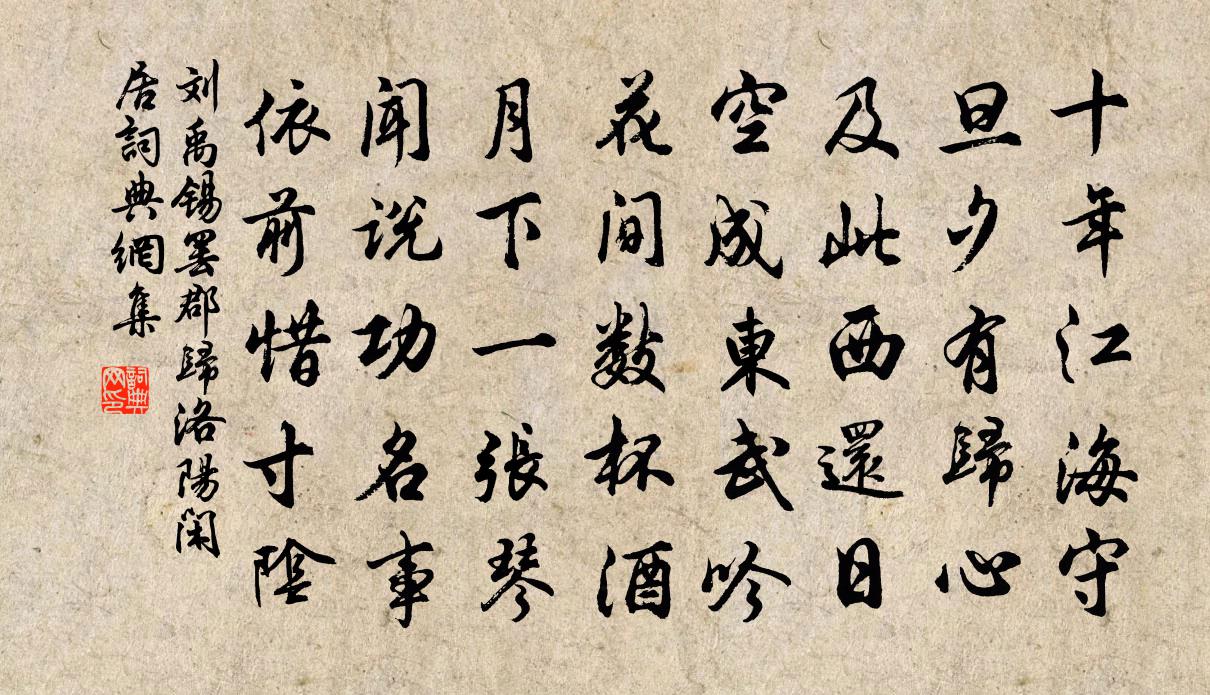 十年江海守
旦夕有歸心
及此西還日
空成東武吟
花间數杯酒
月下一張琴
聞说功名事
依前惜寸陰
刘禹锡罢郡歸洛陽閑
居詞典網集
詞典
网印